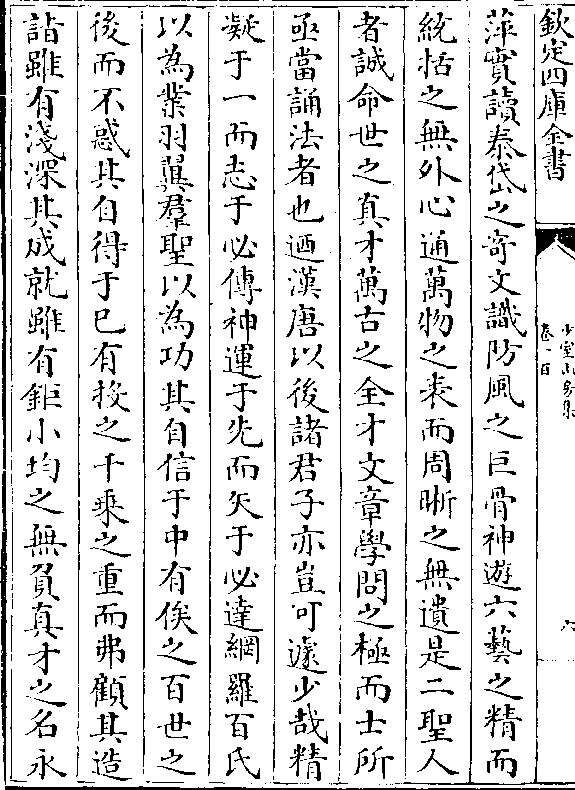 欽定四庫全書
少室山房集
卷一百
六
萍實讀泰岱之竒文識防風之巨骨神遊六藝之精而
統括之無外心通萬物之表而周晰之無遺是二聖人
者誠命世之真才萬古之全才文章學問之極而士所
亟當誦法者也迺漢唐以後諸君子亦豈可遽少哉精
凝于一而志于必傳神運于先而矢于必達網羅百氏
以為業羽翼羣聖以為功其自信于中有俟之百世之
後而不惑其自得于已有投之千乗之重而弗顧其造
詣雖有淺深其成就雖有鉅小均之無負真才之名永